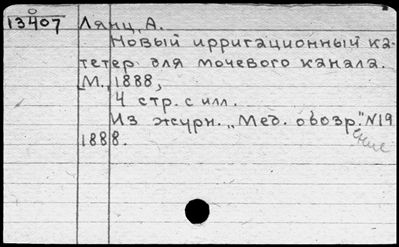 13407 Лянц, А.
Новый ирригационный ка-
тетер для мочевого канала.
М., 1888,
4 стр. с илл.
Из журн. „Мед. обозр." N19
ение
1888.